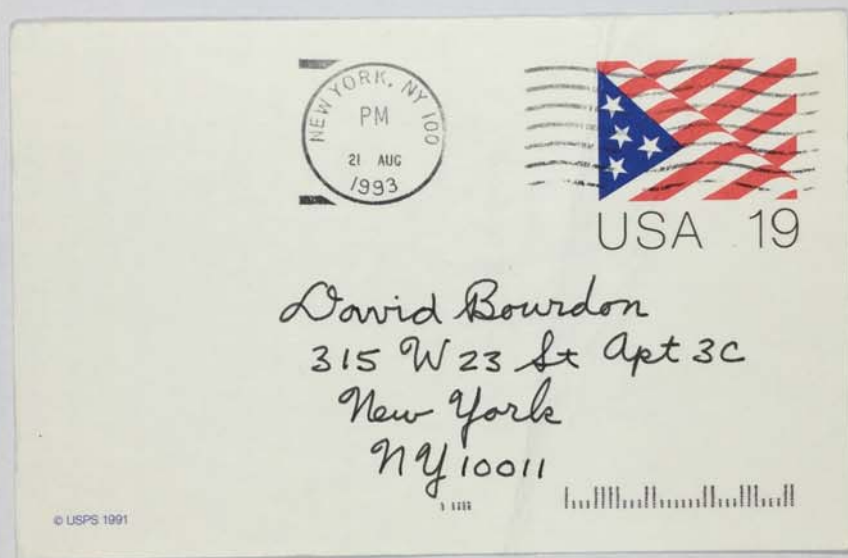 NEW YORK, NY 100
PM
21 AUG
1993
USA 19
David Bourdon
315 W 23 St Apt 3C
New York
NY 10011
© USPS 1991